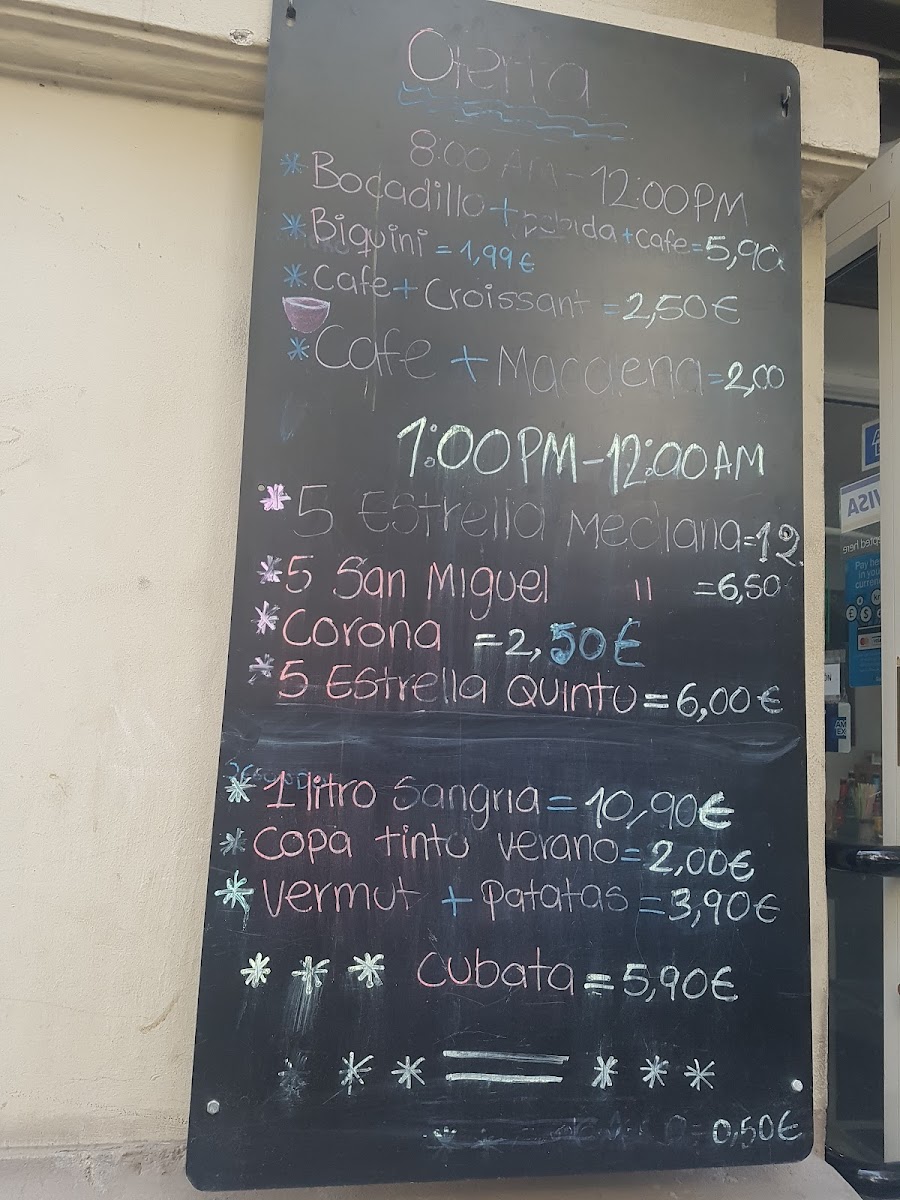 Oferta
8:00 AM - 12:00PM
* Bocadillo + bebida + cafe = 5,90
* Biquini = 1,99€
* Cafe + Croissant = 2,50€
* Cafe + Macalena = 2,00
1:00PM - 12:00AM
* 5 Estrella Mediana = 12
* 5 San Miguel 11 = 6,50
* Corona = 2,50€
* 5 Estrella Quinto = 6,00€
* 1 litro Sangria = 10,90€
* Copa tinto verano = 2,00€
* Vermut + Patatas = 3,90€
* * * Cubata = 5,90€
* * * = * * *
= 0,50€
VISA
Pay
in you
AM
EX